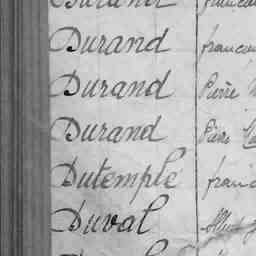 Durand
Durand francou
Durand Pierre
Durand Pierre
Dutemple franc
Duval